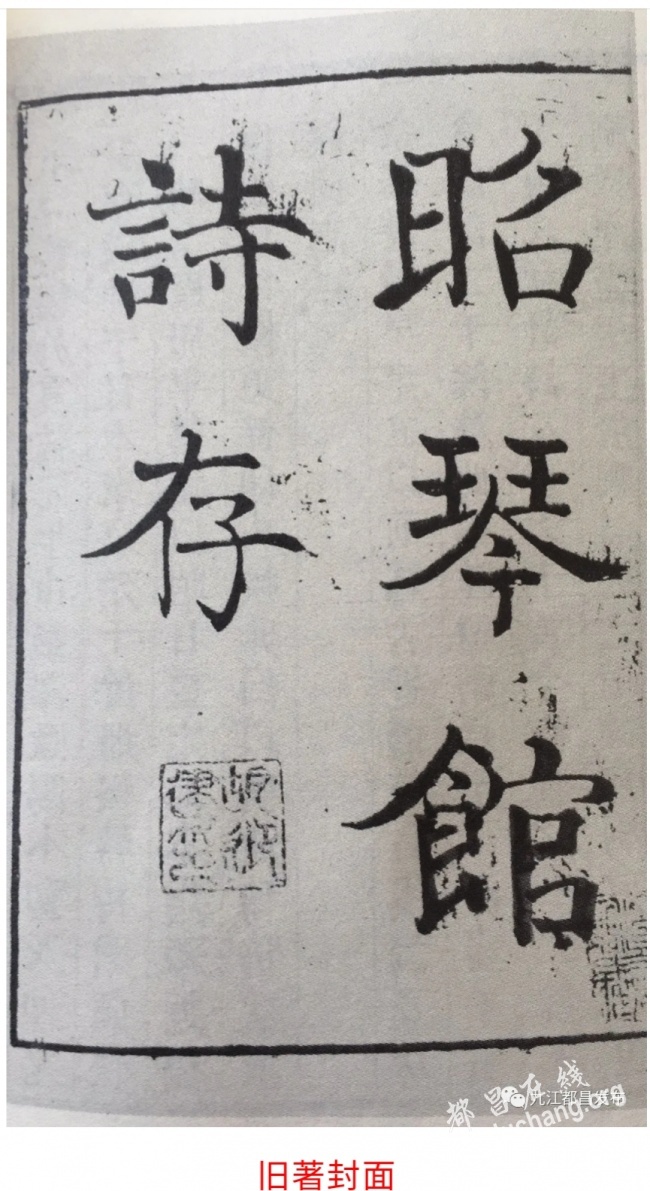 昭琴館
詩存
都昌在线
九江都昌发布
duchang.org
旧著封面